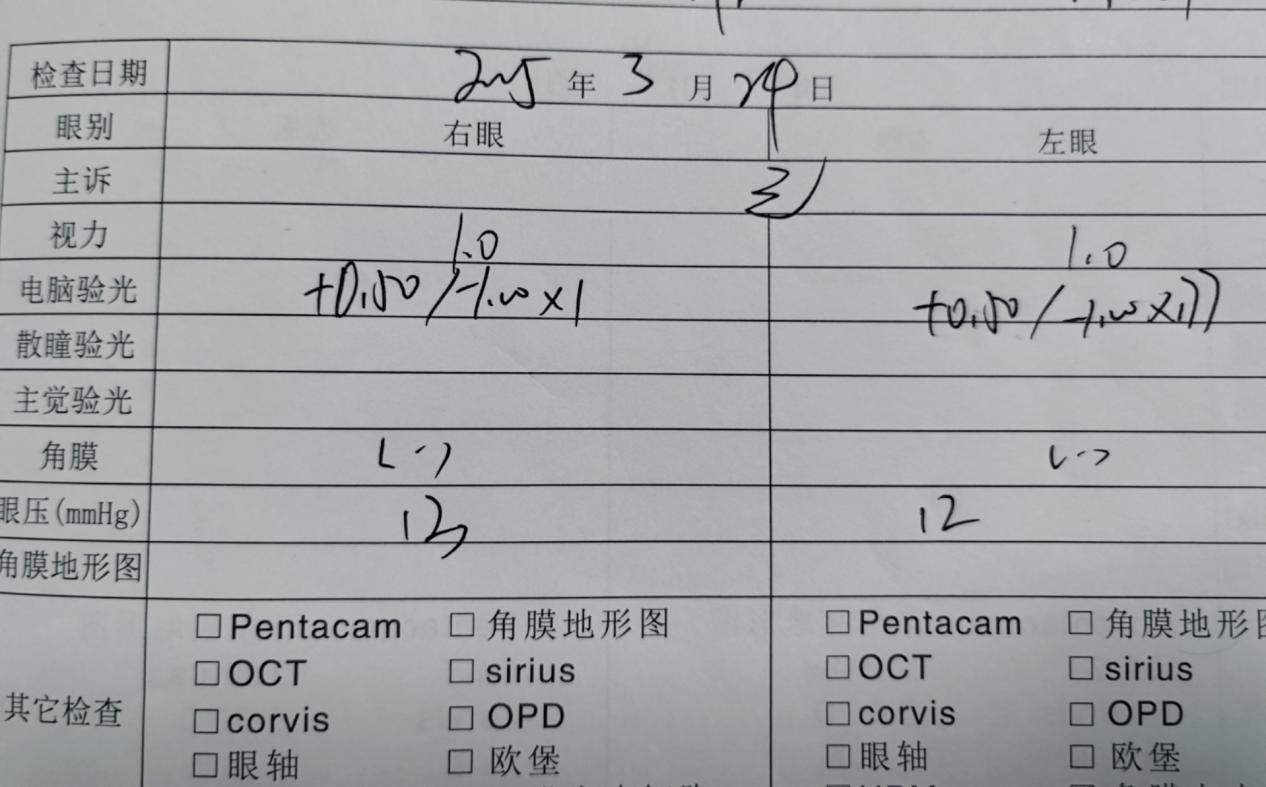 检查日期 2025 年 3 月 24 日
眼别 右眼 左眼
主诉
视力 1.0 1.0
电脑验光 +0.50/-1.00×1 +0.50/-1.00×177
散瞳验光
主觉验光
角膜 (-) (-)
眼压(mmHg) 13 12
角膜地形图
其它检查
□Pentacam □角膜地形图 □Pentacam □角膜地形
□OCT □sirius □OCT □sirius
□corvis □OPD □corvis □OPD
□眼轴 □欧堡 □眼轴 □欧堡